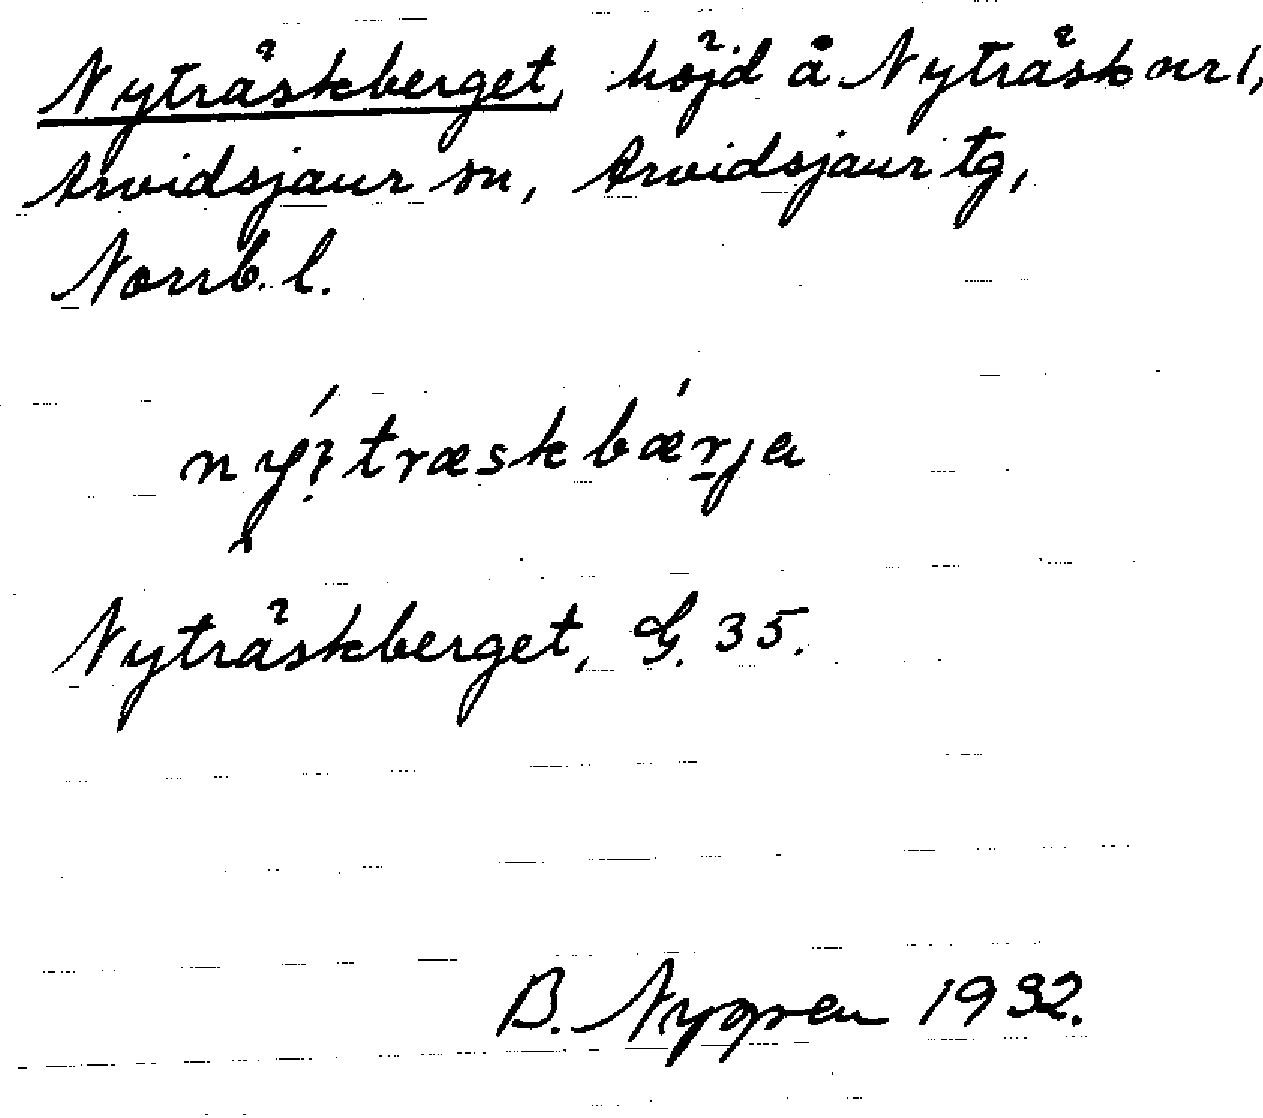 Nyträskberget, höjd å Nyträsk nr 1,
Arvidsjaur sn, Arvidsjaur tg,
Norrb. l.
Nyträskberget, G. 35.
B. Nygren 1932.